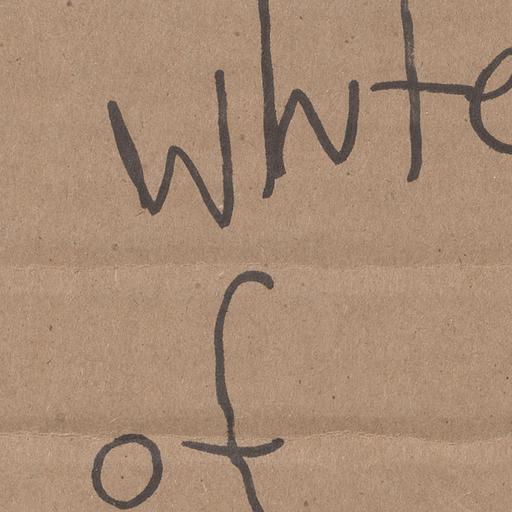 white
of